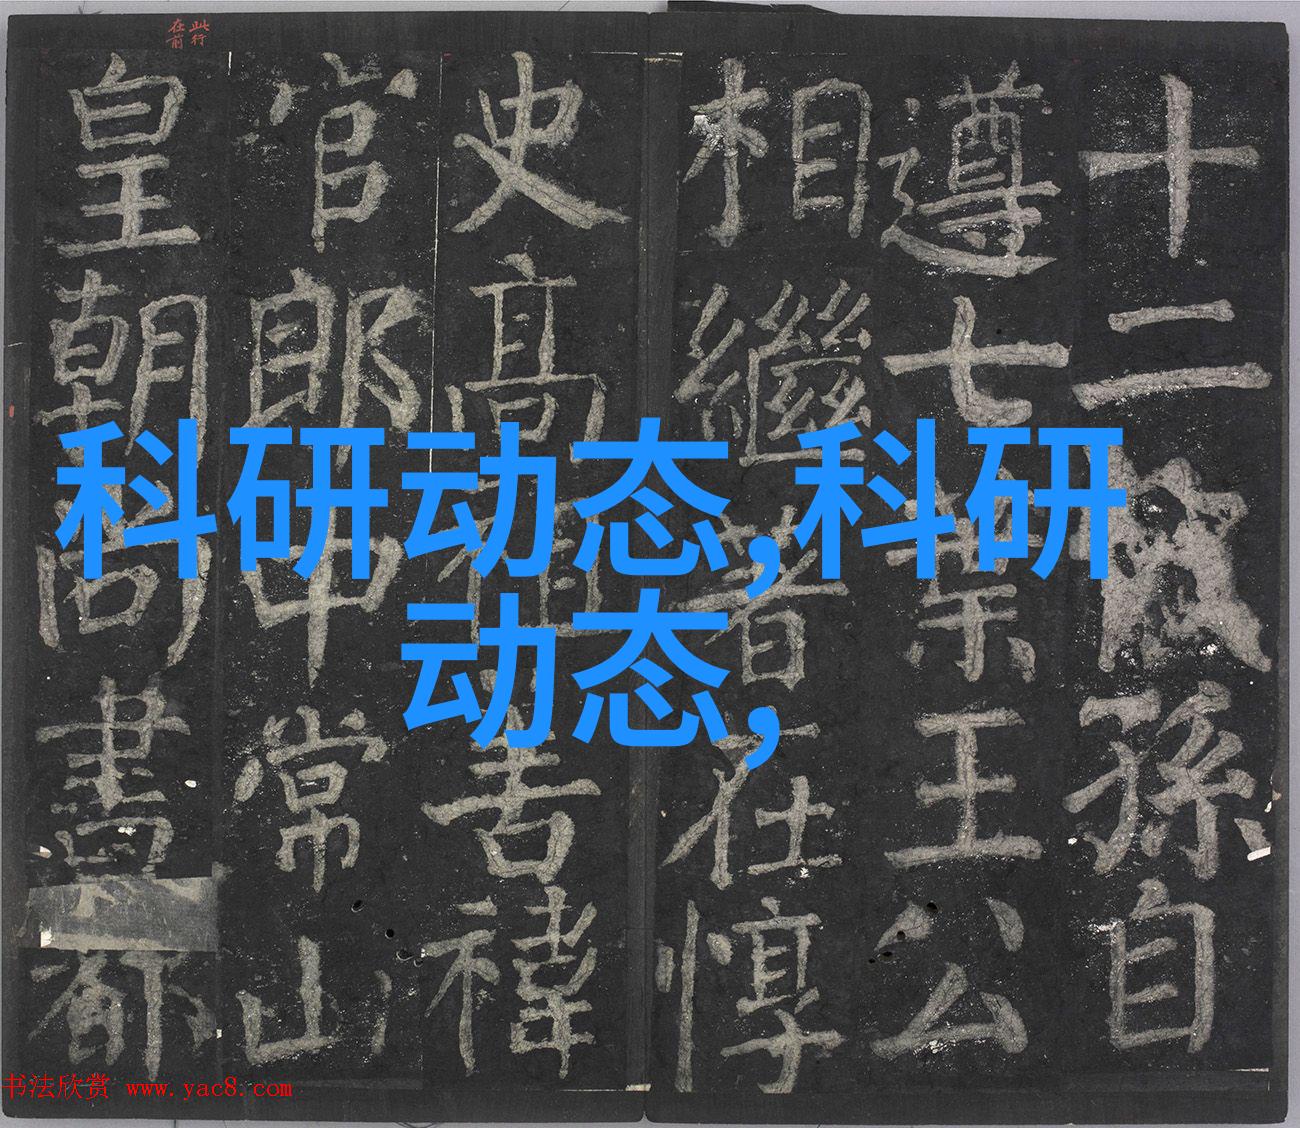 此行
在前
十二孫自
遵七葉王公
相繼著在惇
史高祖吉禕
官郎中常山
皇朝尚書都
科研动态,科研
动态,
书法欣赏 www.yac8.com